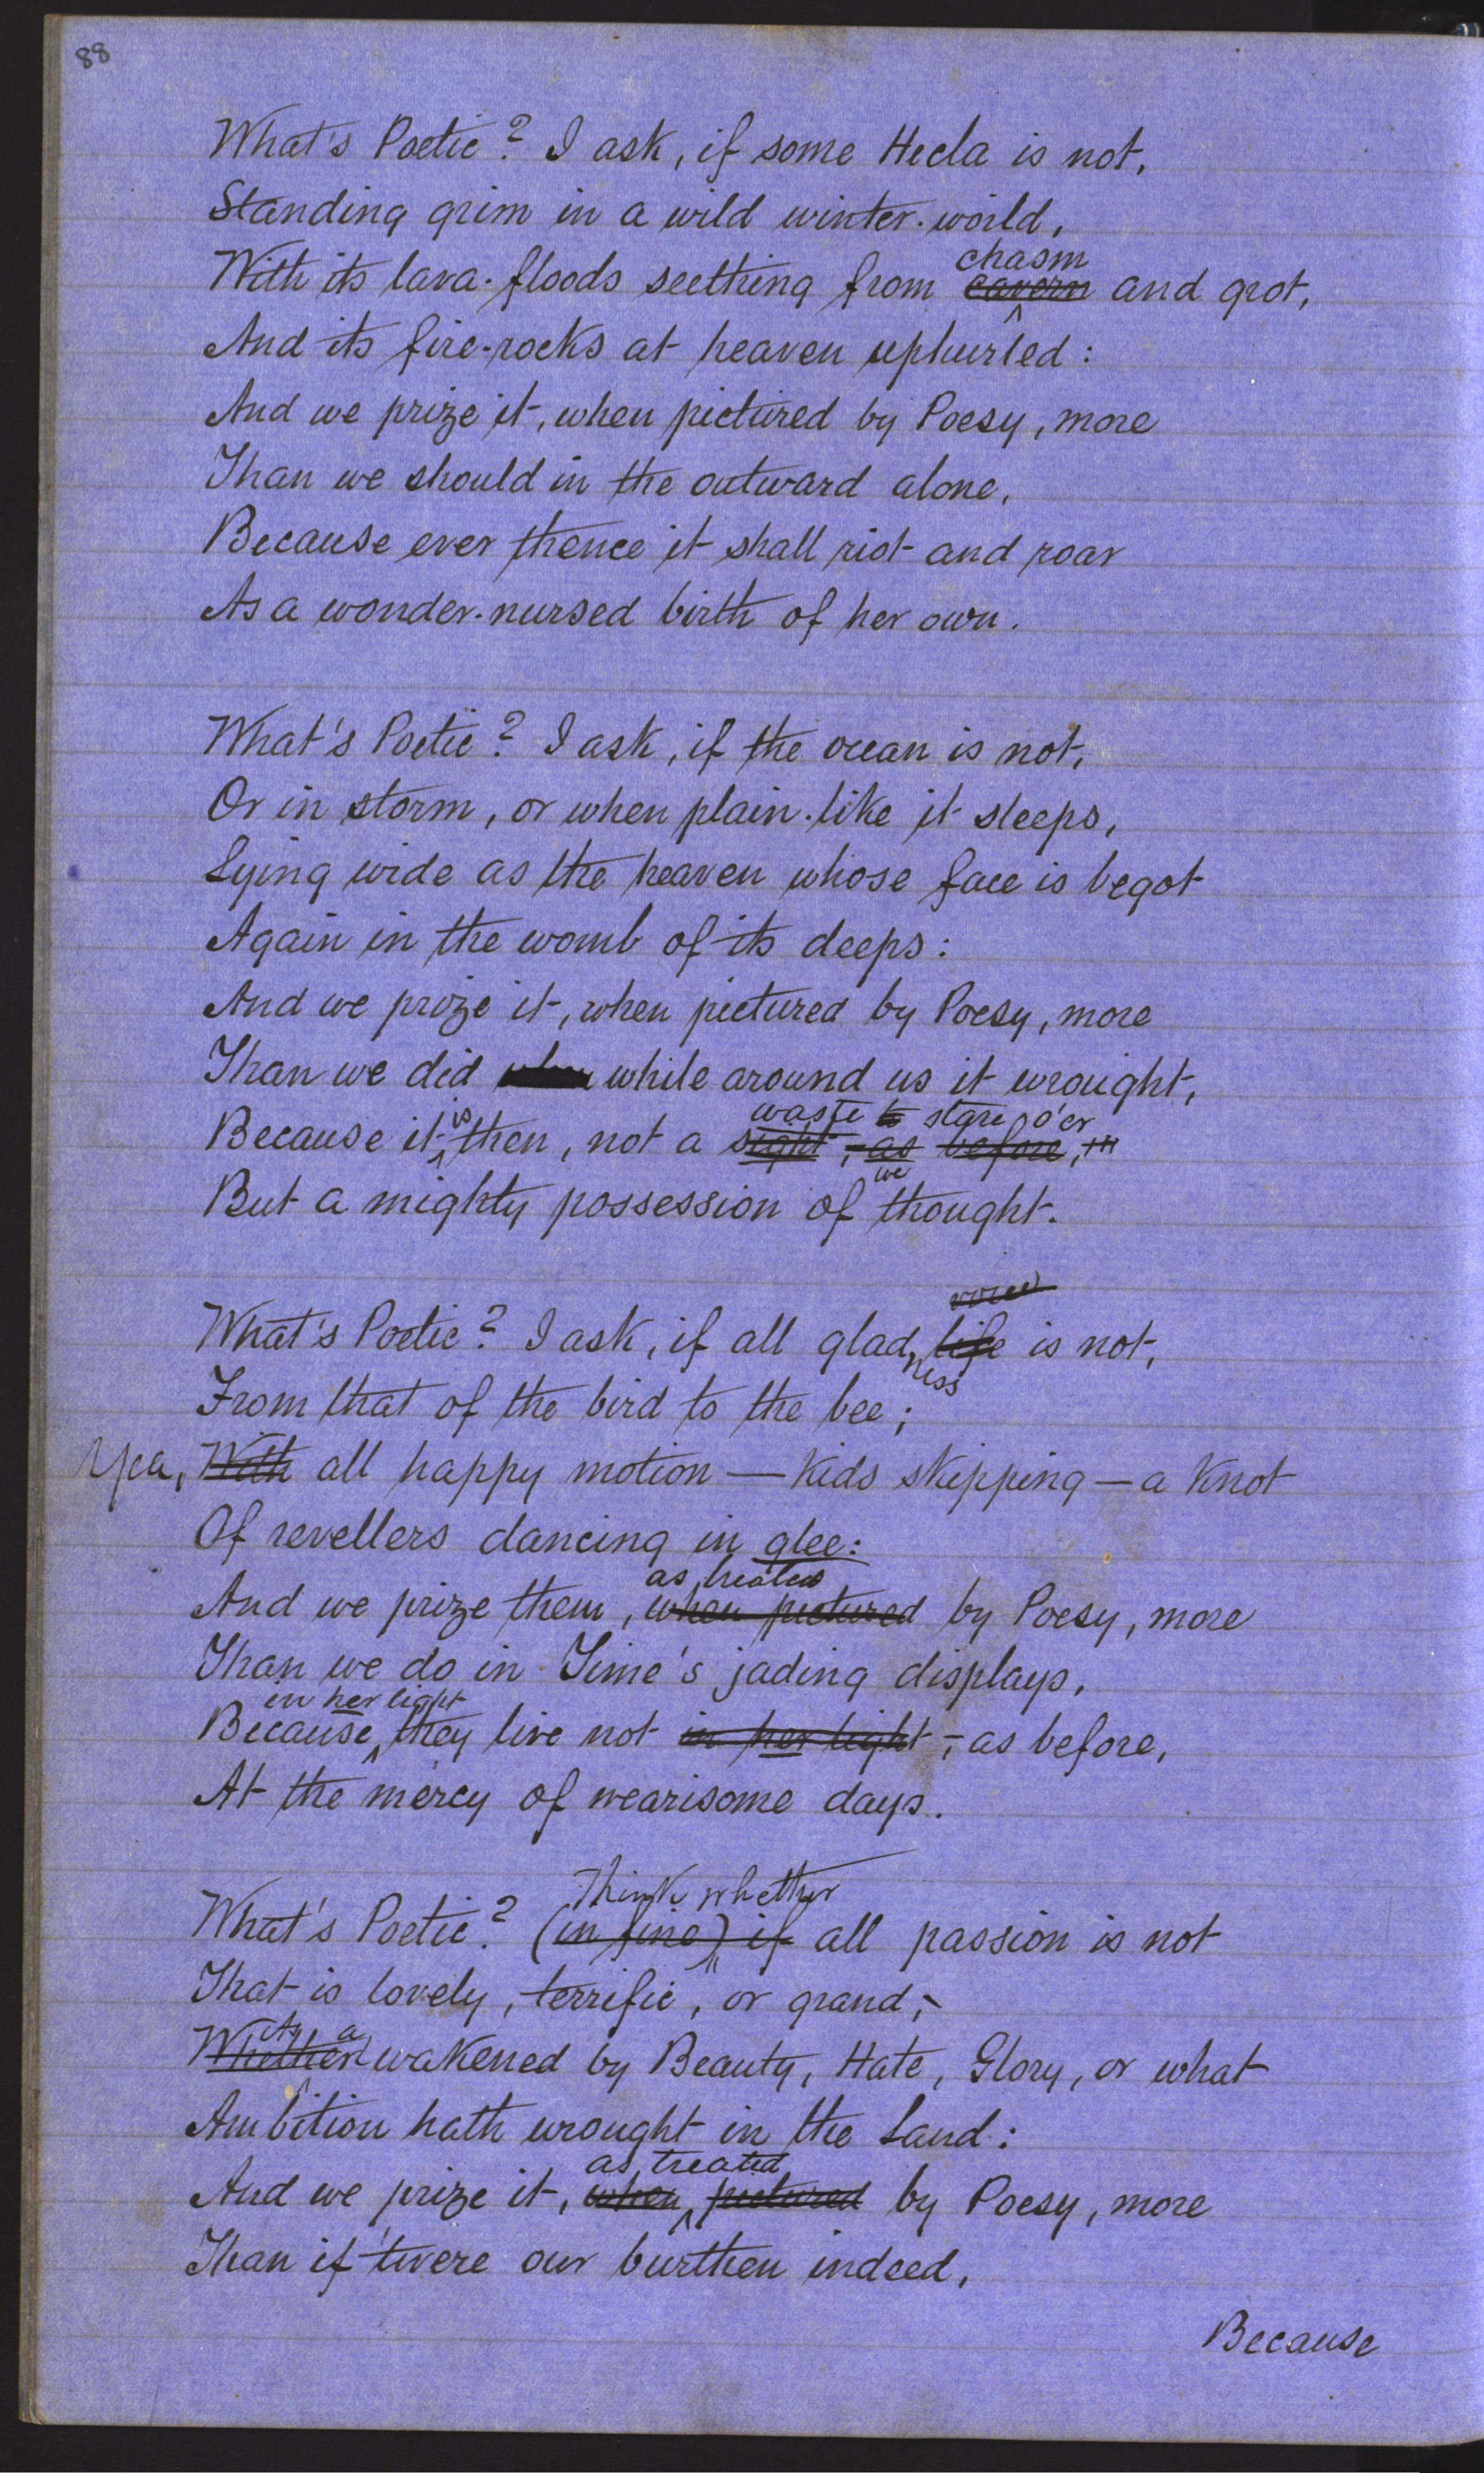 88
What's Poetic? I ask, if some Hecla is not,
Standing grim in a wild winter-world,
chasm
With its lava-floods seething from cavern and grot,
And its fire-rocks at heaven uphurled:
And we prize it, when pictured by Poesy, more
Than we should in the outward alone,
Because ever thence it shall riot and roar
As a wonder-nursed birth of her own.
What's Poetic? I ask, if the ocean is not,
Or in storm, or when plain-like it sleeps,
Lying wide as the heaven whose face is begot
Again in the womb of its deeps:
And we prize it, when pictured by Poesy, more
Than we did while around us it wrought,
is waste to stare o'er
Because it then, not a sight, as before,
we
But a mighty possession of thought.
What's Poetic? I ask, if all glad life is not,
ness
From that of the bird to the bee;
Yea, With all happy motion — kids skipping — a knot
Of revellers dancing in glee:
as treated
And we prize them, when pictured by Poesy, more
Than we do in Time's jading displays,
in her light
Because they live not in her light, as before,
At the mercy of wearisome days.
Think whether
What's Poetic? (in fine) if all passion is not
That is lovely, terrific, or grand,
a
Whether wakened by Beauty, Hate, Glory, or what
Ambition hath wrought in the Land:
as treated
And we prize it, when pictured by Poesy, more
Than if 'twere our burthen indeed,
Because